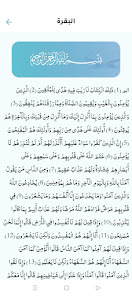 البقرة
بسم الله الرحمن الرحيم
الم (1) ذَلِكَ الْكِتَابُ لَا رَيْبَ فِيهِ هُدًى لِلْمُتَّقِينَ (2) الَّذِينَ
يُؤْمِنُونَ بِالْغَيْبِ وَيُقِيمُونَ الصَّلَاةَ وَمِمَّا رَزَقْنَاهُمْ يُنْفِقُونَ (3)
وَالَّذِينَ يُؤْمِنُونَ بِمَا أُنْزِلَ إِلَيْكَ وَمَا أُنْزِلَ مِنْ قَبْلِكَ وَبِالْآخِرَةِ هُمْ
يُوقِنُونَ (4) أُولَئِكَ عَلَى هُدًى مِنْ رَبِّهِمْ وَأُولَئِكَ هُمُ الْمُفْلِحُونَ (5) إِنَّ
الَّذِينَ كَفَرُوا سَوَاءٌ عَلَيْهِمْ أَأَنْذَرْتَهُمْ أَمْ لَمْ تُنْذِرْهُمْ لَا
يُؤْمِنُونَ (6) خَتَمَ اللَّهُ عَلَى قُلُوبِهِمْ وَعَلَى سَمْعِهِمْ وَعَلَى
أَبْصَارِهِمْ غِشَاوَةٌ وَلَهُمْ عَذَابٌ عَظِيمٌ (7) وَمِنَ النَّاسِ مَنْ يَقُولُ
آمَنَّا بِاللَّهِ وَبِالْيَوْمِ الْآخِرِ وَمَا هُمْ بِمُؤْمِنِينَ (8) يُخَادِعُونَ اللَّهَ
وَالَّذِينَ آمَنُوا وَمَا يَخْدَعُونَ إِلَّا أَنْفُسَهُمْ وَمَا يَشْعُرُونَ (9) فِي
قُلُوبِهِمْ مَرَضٌ فَزَادَهُمُ اللَّهُ مَرَضًا وَلَهُمْ عَذَابٌ أَلِيمٌ بِمَا كَانُوا
يَكْذِبُونَ (10) وَإِذَا قِيلَ لَهُمْ لَا تُفْسِدُوا فِي الْأَرْضِ قَالُوا إِنَّمَا نَحْنُ
مُصْلِحُونَ (11) أَلَا إِنَّهُمْ هُمُ الْمُفْسِدُونَ وَلَكِنْ لَا يَشْعُرُونَ (12) وَإِذَا
قِيلَ لَهُمْ آمِنُوا كَمَا آمَنَ النَّاسُ قَالُوا أَنُؤْمِنُ كَمَا آمَنَ
السُّفَهَاءُ أَلَا إِنَّهُمْ هُمُ السُّفَهَاءُ وَلَكِنْ لَا يَعْلَمُونَ (13) وَإِذَا
لَقُوا الَّذِينَ آمَنُوا قَالُوا آمَنَّا وَإِذَا خَلَوْا إِلَى شَيَاطِينِهِمْ قَالُوا إِنَّا مَعَكُمْ